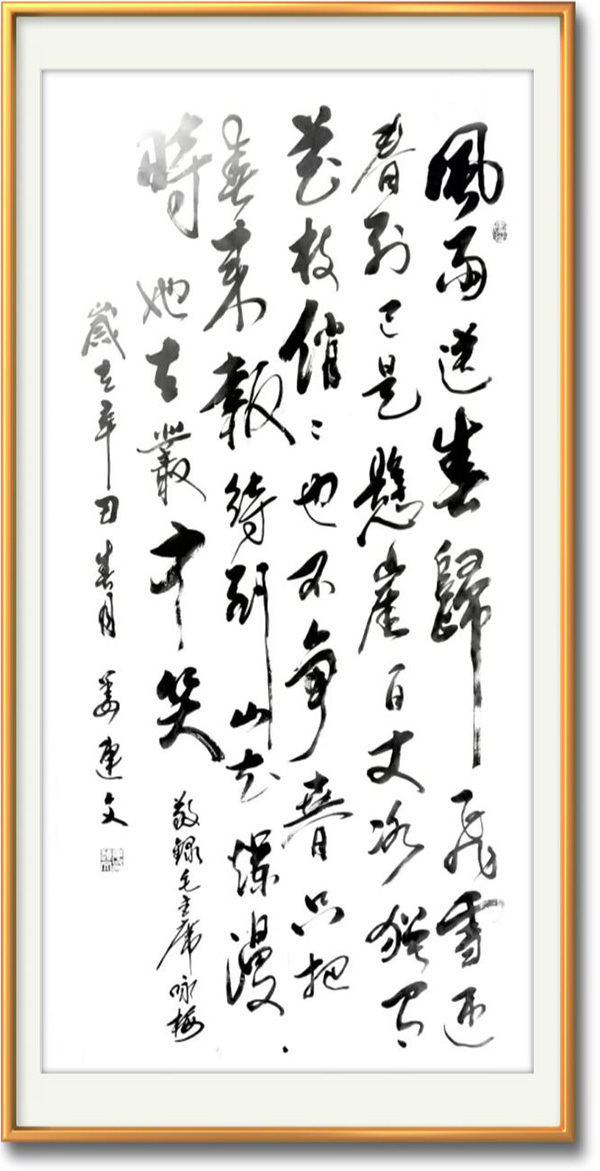 風雨送春歸飛雪迎
春到已是懸崖百丈冰猶有
花枝俏〻也不争春只把
春来報待到山花爛漫
時她在叢中笑
敬録毛主席咏梅
歲在辛丑春月姜建文